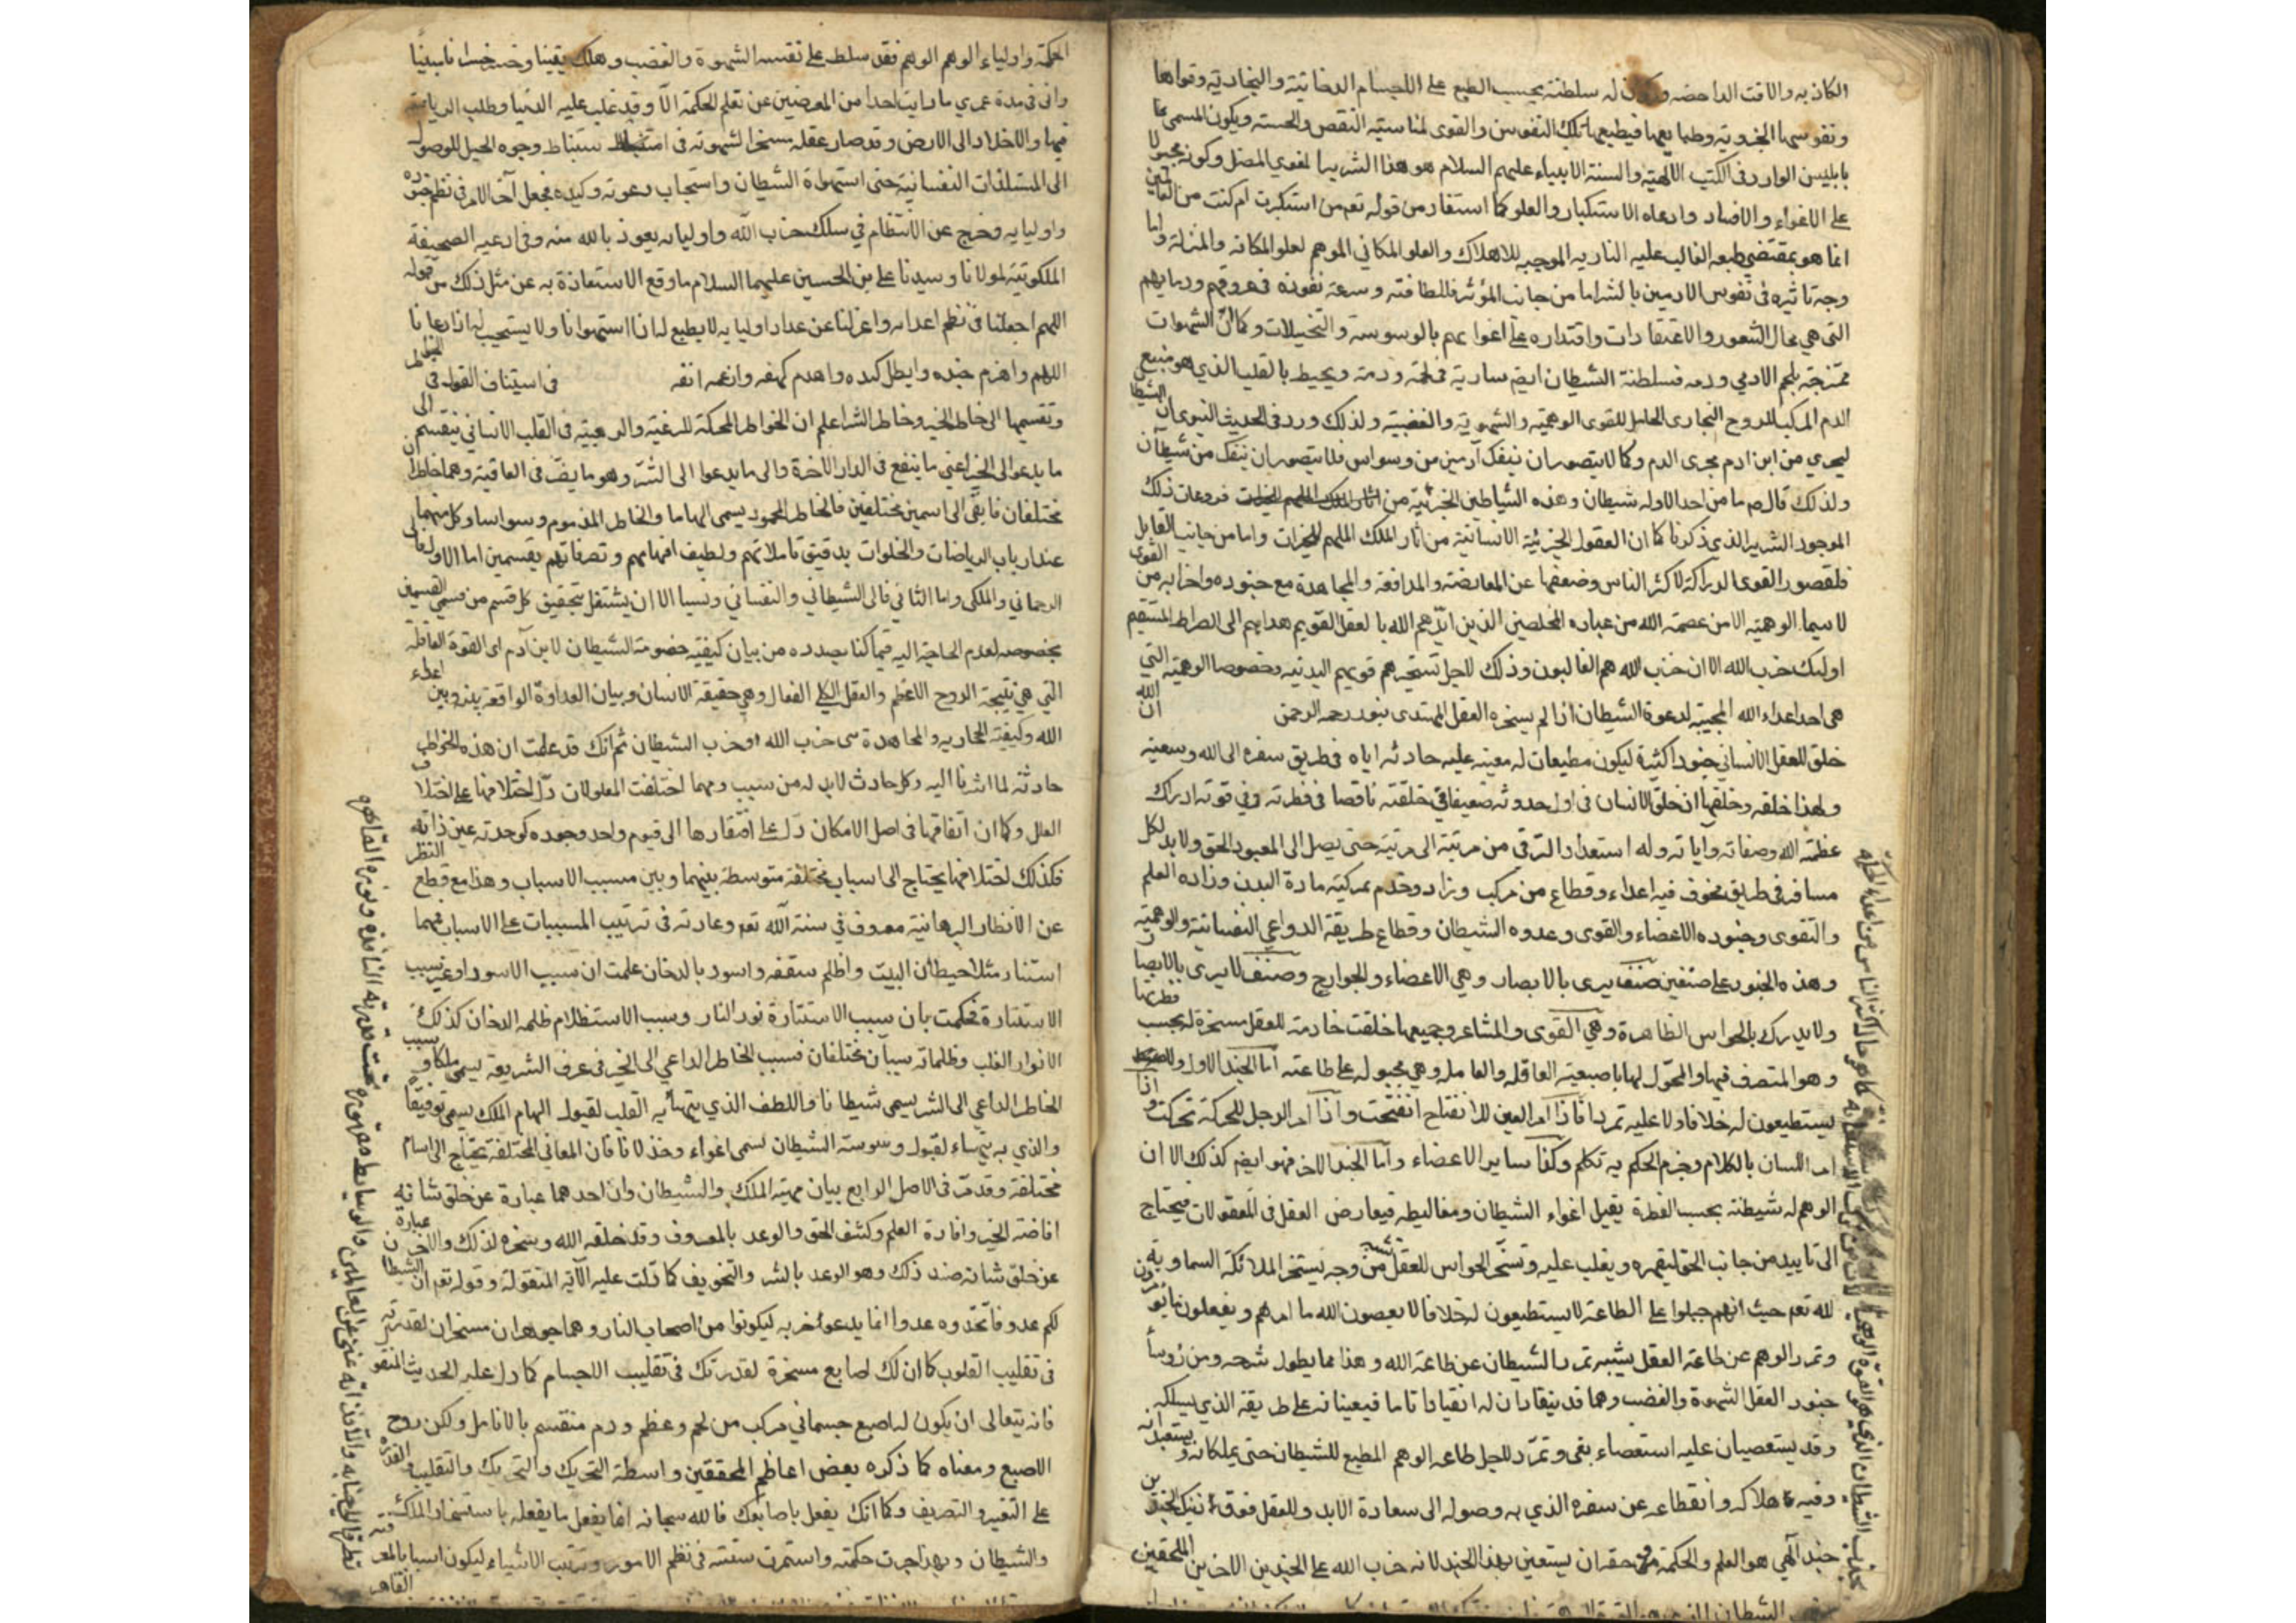 الكاذبه والاقت الداحضه وكون له سلطنة بحسب الطبع على الاجسام الدخانية والبخارية وقواها
ونفوسها الجزوية وطبايعها فيطيعها تلك النفوس والقوى لمناسبته النقص والخسة ويكون المسمى بما
بابليس الوارد في الكتب الالهية والسنة الانبياء عليهم السلام هو هذا الشرير المغوي المضل وكونه مجبولا
على الاغواء والافساد وادعاه الاستكبار والعلو كما استفاد من قوله تعم من استكبرت ام كنت من العالين
انما هو بمقتضى طبعه الغالب عليه النارية الموجبه للاهلاك والعلو المكاني الموهم لعلو المكانه والمنزلة واما
وجه تاثيره في نفوس الادميين بالشر اما من جانب المؤثر فللطافته وسرعة نفوذه في عروقهم ودمايهم
التي هي محال الشعور والاعتقادات واقتداره على اغوايهم بالوسوسة والتخيلات وكما ان الشهوات
ممتزجة بلحم الادمي ودمه فسلطنة الشيطان ايضم سارية في لحمه ودمه ويحيط بالقلب الذي هو منبع
الدم المركب للروح البخاري الحامل للقوى الوهمية والشهوية والغضبية ولذلك ورد في الحديث النبوي ان الشيطان
ليجري من ابن ادم مجرى الدم وكما لا يتصور ان ينفك آدمي من وسواس فلا يتصور ان ينفك من شيطان
ولذلك قال صم ما من احد الا وله شيطان وهذه الشياطين الجزئية من فروعات ذلك
الموجود الشرير الذي ذكرنا كما ان العقول الجزئية الانسانية من آثار الملك الملهم للخيرات واما من جانب القابل
فلقصور القوى الدراكة لاكثر الناس وضعفها عن المعارضة والمدافعة والمجاهدة مع جنوده واحزابه من القوى
لا سيما الوهمية الا من عصمة الله من عباده المخلصين الذين ايدهم الله بالعقل القويم هداهم الى الصراط المستقيم
اوليك حزب الله الا ان حزب الله هم الغالبون وذلك لاجل تسخيرهم قويهم البدنيه وخصوصا الوهمية التي
هي احد اعداء الله المجيبة لدعوة الشيطان اذا لم يسخره العقل المهتدى بنور رحمه الرحمن ان الله
خلق للعقل الانساني جنودا كثيرة ليكون مطيعات له معينه عليه حادثه اياه في طريق سفره الى الله وسعيه
ولهذا خلقه وخلقها ان خلق الانسان في اول حدوثه ضعيفا في خلقته ناقصا في فطرته وفي قوته ادراك
عظمة الله وصفاته وآياته وله استعداد الترقي من مرتبة الى مرتبة حتى يصل الى المعبود الحق ولا بد لكل
مسافر في طريق مخوف فيه اعداء وقطاع من مركب وزاد وخدم بمركبه مادة البدن وزاده العلم
والتقوى وجنوده الاعضاء والقوى وعدوه الشيطان وقطاع طريقة الدواعي النفسانية والوهمية
وهذه الجنود على صنفين صنف يرى بالابصار وهي الاعضاء والجوارح وصنف لا يرى بالابصار
ولا يدرك بالحواس الظاهرة وهي القوى والمشاعر وجميعها خلقت خادمة للعقل مسخرة له بحسب فطرتها
وهو المتصرف فيها والمحول لها باصبعيه العاقله والعامله وهي مجبوله على طاعته اما الجند الاول
يستطيعون له خلافا ولا عليه تمردا فاذا امر العين للانفتاح انفتحت واذا امر الرجل للحركة تحركت واذا
امر اللسان بالكلام وجزم الحكم به تكلم وكذا ساير الاعضاء واما الجند الاخر فهو ايضم كذلك الا ان
الوهم له شيطنة بحسب الفطرة يقبل اغواء الشيطان ومغاليطه فيعارض العقل في المعقولات فيحتاج
الى تاييد من جانب الحق ليقهره ويغلب عليه وتسخر الحواس للعقل من وجه يستخر الملائكة السماوية
لله تعم حيث انهم جبلوا على الطاعة لا يستطيعون له خلافا لا يعصون الله ما امرهم ويفعلون ما يؤمرون
وتمرد الوهم عن طاعة العقل يشبه تمرد الشيطان عن طاعة الله وهذا مما يطول شرحه ومن رؤسا
جنود العقل الشهوة والغضب وهما قد ينقادان له انقيادا تاما فيعينانه على طريقه الذي يسلكه
وقد يستعصيان عليه استعصاء بغى وتمرد لاجل طاعه الوهم المطيع للشيطان حتى يملكانه ويستعبدانه
وفيه هلاكه وانقطاعه عن سفره الذي به وصوله الى سعادة الابد وللعقل فوق ذينك الجندين
جند آلهي هو العلم والحكمة حقه ان يستعين بهذا الجند لانه حزب الله على الجندين الاخرين الملحقين
بجذاب الشيطان الذي هو القوة الوهمية
الحكمة واولياء الوهم الوهم فقد سلط على نفسه الشهوة والغضب وهلك يقينا وخسر خسرانا مبينا
واني في مدة عمري ما رايت احدا من المعرضين عن تعلم الحكمة الا وقد غلب عليه الدنيا وطلب الرياسة
فيها والاخلاد الى الارض وقد صار عقله مسخرا لشهوته في استنباط وجوه الحيل للوصول
الى المستلذات النفسانية حتى استهواه الشيطان واستجاب دعوته وكيده فجعل آخر الامر في نظم جنوده
واوليايه وخرج عن الانتظام في سلك حزب الله واوليايه نعوذ بالله منه وفي ادعيه الصحيفة
الملكوتية لمولانا وسيدنا علي بن الحسين عليهما السلام ما وقع الاستعاذة به عن مثل ذلك من قوله
اللهم اجعلنا في نظم اعدائه واعزلنا عن عداد اوليايه لا يطيع له اذا استهوانا ولا يستجيب له اذا دعانا
اللهم واهزم جنده وابطل كيده واهدم كهفه وارغم انفه في استيناف القول في الخواطر
وتقسيمها الى خاطر الخير وخاطر الشر اعلم ان الخواطر المحركة للرغبة والرهبة في القلب الانساني ينقسم الى
ما يدعو الى الخير اعني ما ينفع في الدار الاخرة والى ما يدعوا الى الشر وهو ما يضر في العاقبة وهما خاطران
مختلفان فابقى الى اسمين مختلفين فالخاطر المحمود يسمى الهاما والخاطر المذموم وسواسا وكل منهما
عند ارباب الرياضات والخلوات بدقيق تاملاتهم ولطيف افهامهم وتصرفاتهم بقسمين اما الاول فالى
الرحماني والملكي واما الثاني فالى الشيطاني والنفساني ونسيا الا ان يشتغل بتحقيق كل قسم من قسمي القسمين
بخصوصه لعدم الحاجة اليه فيما كنا بصدده من بيان كيفية خصومة الشيطان لابن آدم اى القوة العاقلة
التي هي نتيجة الروح الاعظم والعقل الكلي الفعال وهي حقيقة الانسان وبيان العداوة الواقعة بينه وبين اعداء
الله وكيفية المحاربه والمجاهدة من حزب الله وحزب الشيطان ثم انك قد علمت ان هذه الخواطر
حادثة لما اشرنا اليه وكل حادث لا بد له من سبب ومهما اختلفت المعلولات دل اختلافها على اختلاف
العلل وكما ان اتفاقها في اصل الامكان دل على افتقارها الى قيوم واحد وجوده كوحدته عين ذاته
فكذلك اختلافها يحتاج الى اسباب مختلفة متوسطة بينهما وبين مسبب الاسباب وهذا مع قطع النظر
عن الانظار البرهانية معروف في سنة الله تعم وعادته في ترتيب المسببات على الاسباب فمهما
استنار مثلا حيطان البيت واظلم سقفه واسود بالدخان علمت ان سبب الاسوداد غير سبب
الاستنارة فحكمت بان سبب الاستنارة نور النار وسبب الاستظلام ظلمه الدخان كذلك
لانوار القلب وظلماته سببان مختلفان فسبب الخاطر الداعي الى الخير في عرف الشريعة يسمى ملكا وسبب
الخاطر الداعي الى الشر يسمى شيطانا واللطف الذي يتهيأ به القلب لقبول الهام الملك يسمى توفيقا
والذي به يتهياء لقبول وسوسة الشيطان يسمى اغواء وخذلانا فان المعاني المختلفة يحتاج الى اسام
مختلفة وقد مر في الاصل الرابع بيان مهية الملك والشيطان وان احدهما عبارة عن خلق شانه
افاضة الخير وافادة العلم وكشف الحق والوعد بالمعروف وقد خلقه الله وسخره لذلك والاخر عبارة
عن خلق شانه ضد ذلك وهو الوعد بالشر والتخويف كما دلت عليه الآية المنقولة وقوله تعم ان الشيطان
لكم عدو فاتخذوه عدوا انما يدعو حزبه ليكونوا من اصحاب النار وهما جوهران مسخران لقدرته
في تقليب القلوب كما ان لك اصابع مسخرة لقدرتك في تقليب الاجسام كما دل عليه الحديث المنقول
فانه يتعالى ان يكون له اصبع جسماني مركب من لحم وعظم ودم منقسم بالانامل ولكن روح
الاصبع ومعناه كما ذكره بعض اعاظم المحققين واسطة التحريك والتحريك والتقليب والقدرة
على التغير والتصريف وكما انك يفعل باصابعك فالله سبحانه انما يفعل ما يفعله باستسخار الملك
والشيطان وبهذا جرت حكمته واستمرت سنته في نظم الامور وترتيب الاشياء ليكون اسبابا